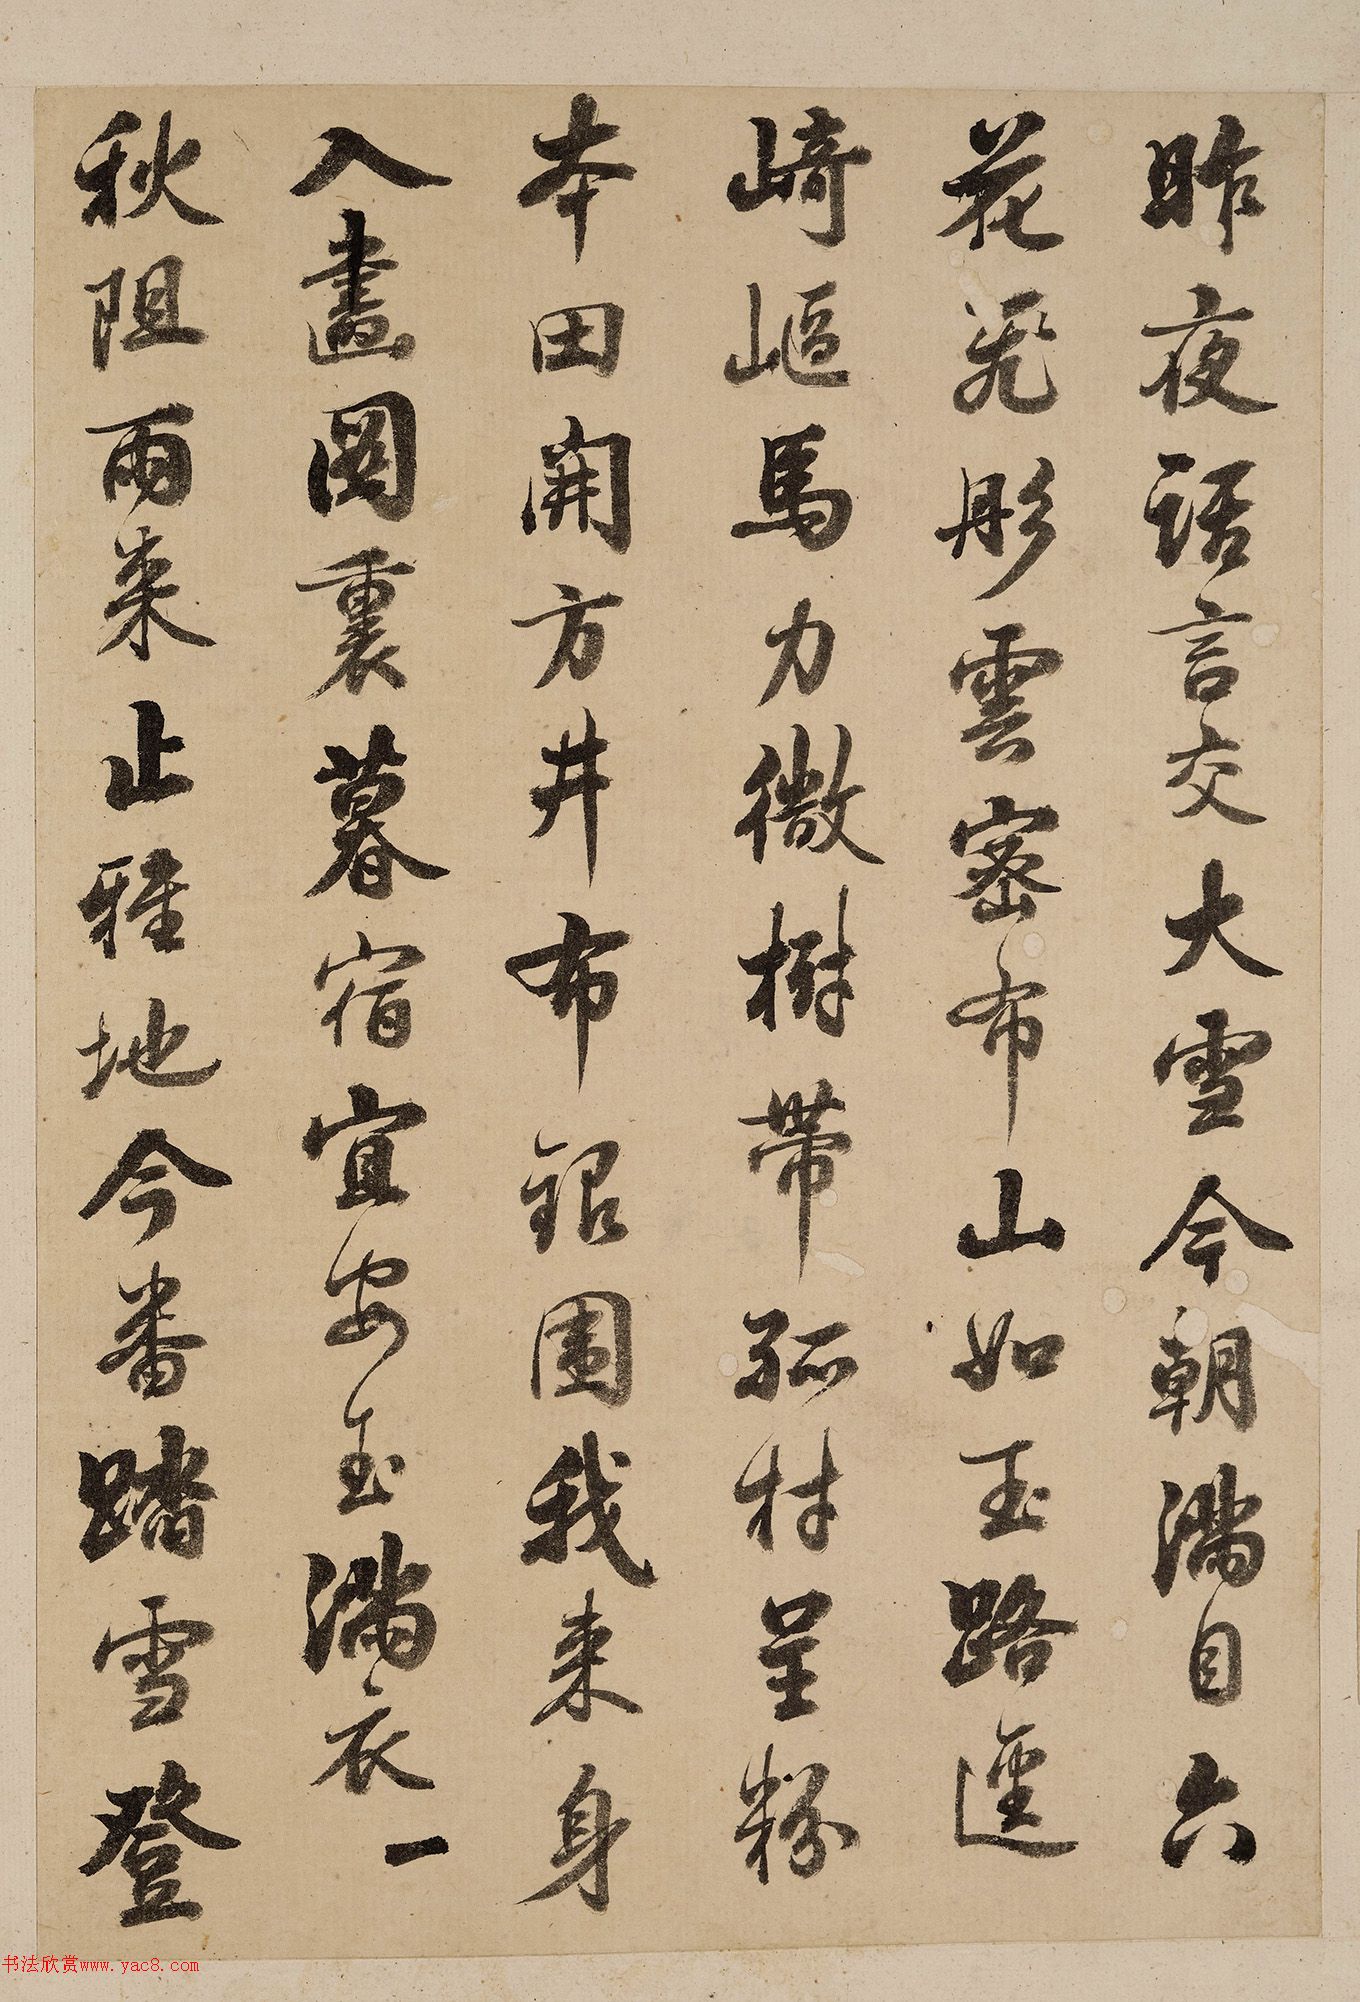 昨夜語言交大雪今朝滿目六
花飛彤雲密布山如玉路逕
崎嶇馬力微樹帶孤村呈粉
本田開方井布銀圍我来身
入畫圖裏暮宿宜安玉滿衣一
秋阻雨来止雅地今番踏雪登
书法欣赏www.yac8.com